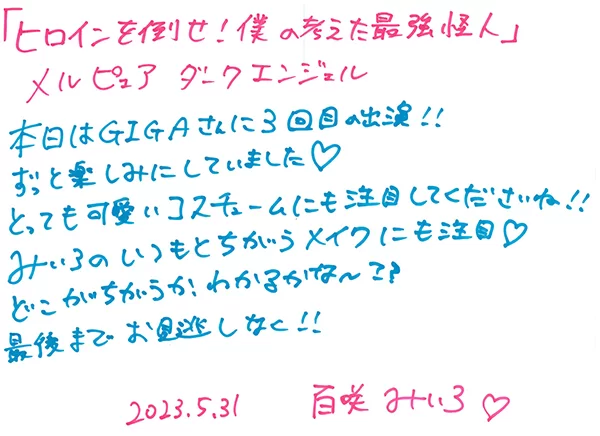 「ヒロインを倒せ！僕の考えた最強怪人」
メルピュア ダークエンジェル
本日はGIGAさんに3回目の出演！！
ずっと楽しみにしていました♡
とっても可愛いコスチュームにも注目してくださいね！！
みいろのいつもとちがうメイクにも注目♡
どこがちがうか、わかるかな〜??
最後までお見逃しなく！！
2023.5.31 百咲みいろ♡